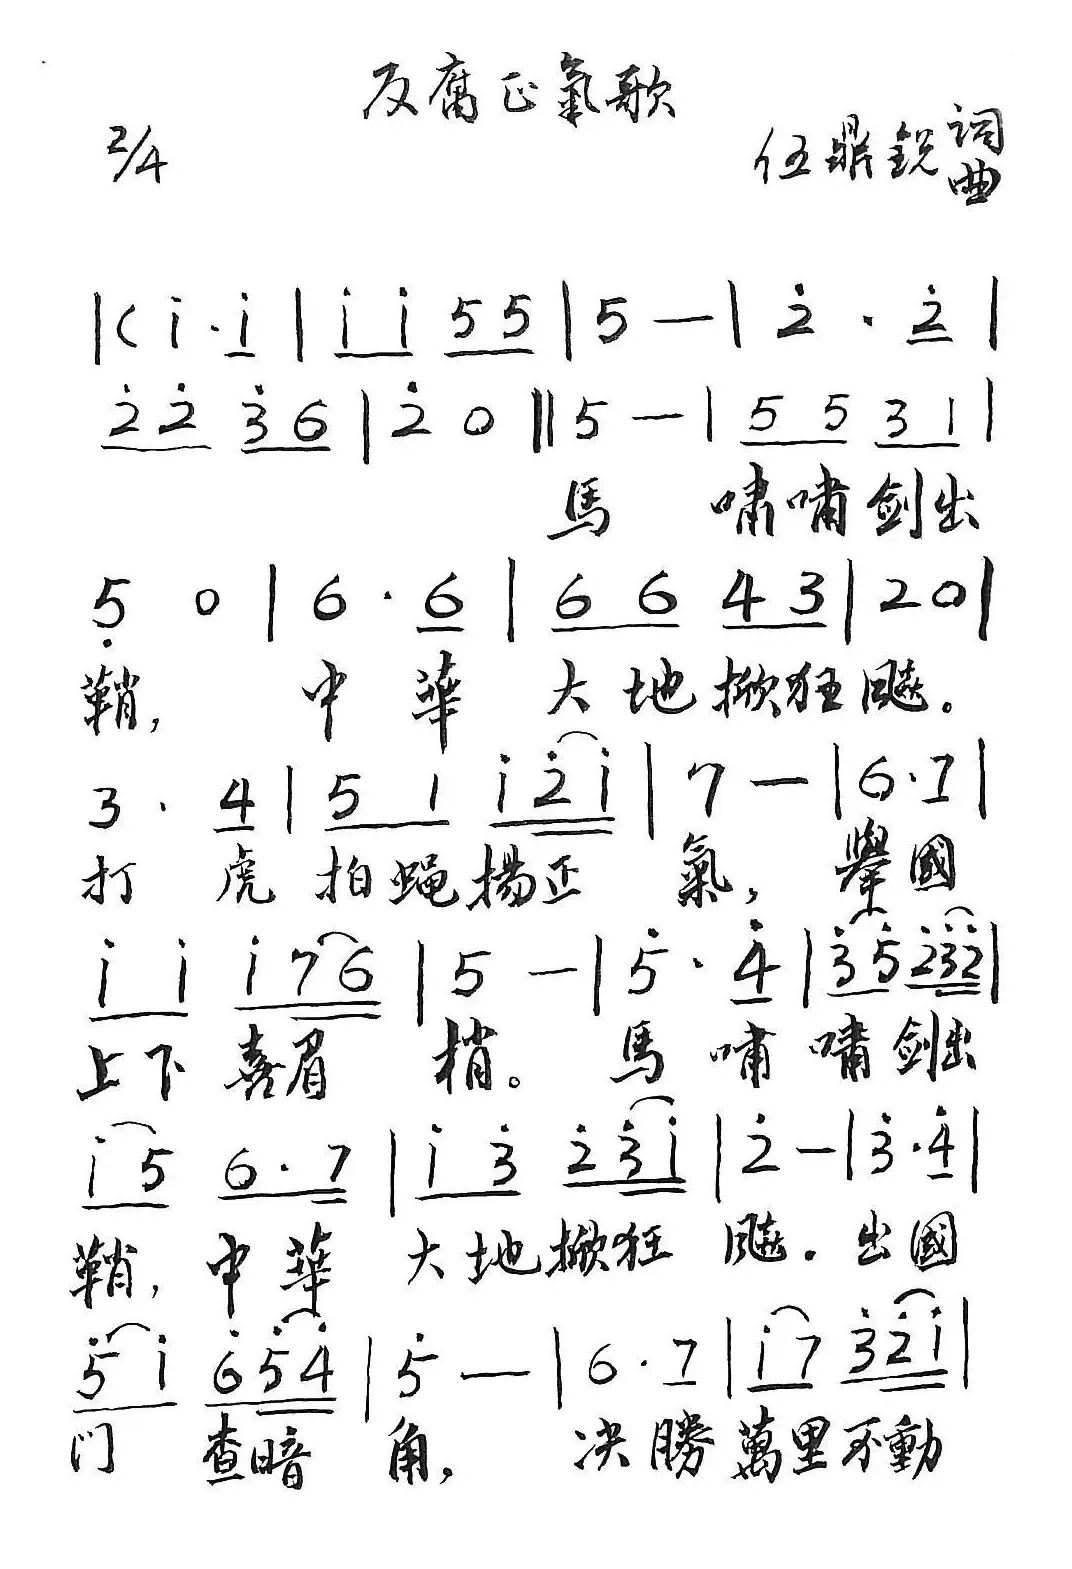 反腐正氣歌
2/4
伍鼎銳 詞曲
|( i̇ · i̇ | i̇ i̇ 5 5 | 5 — | 2̇ · 2̇ |
2̇ 2̇ 3̇ 6 | 2̇ 0 || 5 — | 5 5 3 1 |
馬 嘯嘯劍出
5̣ 0 | 6 · 6 | 6 6 4 3 | 2 0 |
鞘, 中華 大地掀狂飈。
3 · 4 | 5 1 i̇ 2̇ i̇ | 7 — | 6 · 7 |
打虎拍蝇揚正 氣, 舉國
i̇ i̇ i̇ 7 6 | 5 — | 5̇ · 4̇ | 3̇ 5̇ 2̇ 3̇ 2̇ |
上下喜眉 梢。 馬嘯嘯劍出
i̇ 5 6 · 7 | i̇ 3̇ 2̇ 3̇ i̇ | 2̇ — | 3̇ · 4̇ |
鞘, 中華 大地掀狂 飈. 出國
5̇ i̇ 6̇ 5̇ 4̇ | 5̇ — | 6 · 7 | i̇ 7 3̇ 2̇ i̇ |
门 查暗 角, 决勝萬里不動